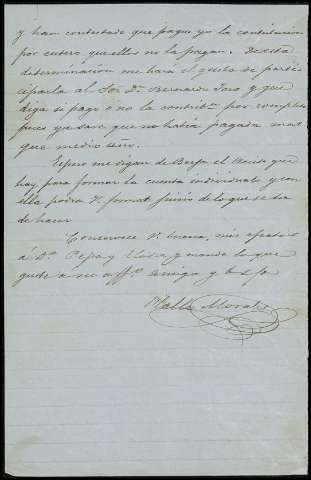 y han contestado que pague yo la contribucion
por entero que ellos no la pagan. De esta
determinacion me hará el gusto de parti-
ciparla al Sor. Dn. Bernardo Toro y que
diga si pago ó no la contribn. por completo
pues ya sabe que no había pagado mas
que medio año.
Espero me digan de Berja el que
hay para formar la cuenta individual y con
ella podra V. formar juicio de lo que se ha
de hacer
Conservese V. buena, mis afectos
á Da. Pepa y Luisa y mande lo que
guste á su affmo. amigo y b. s. p.
Morales